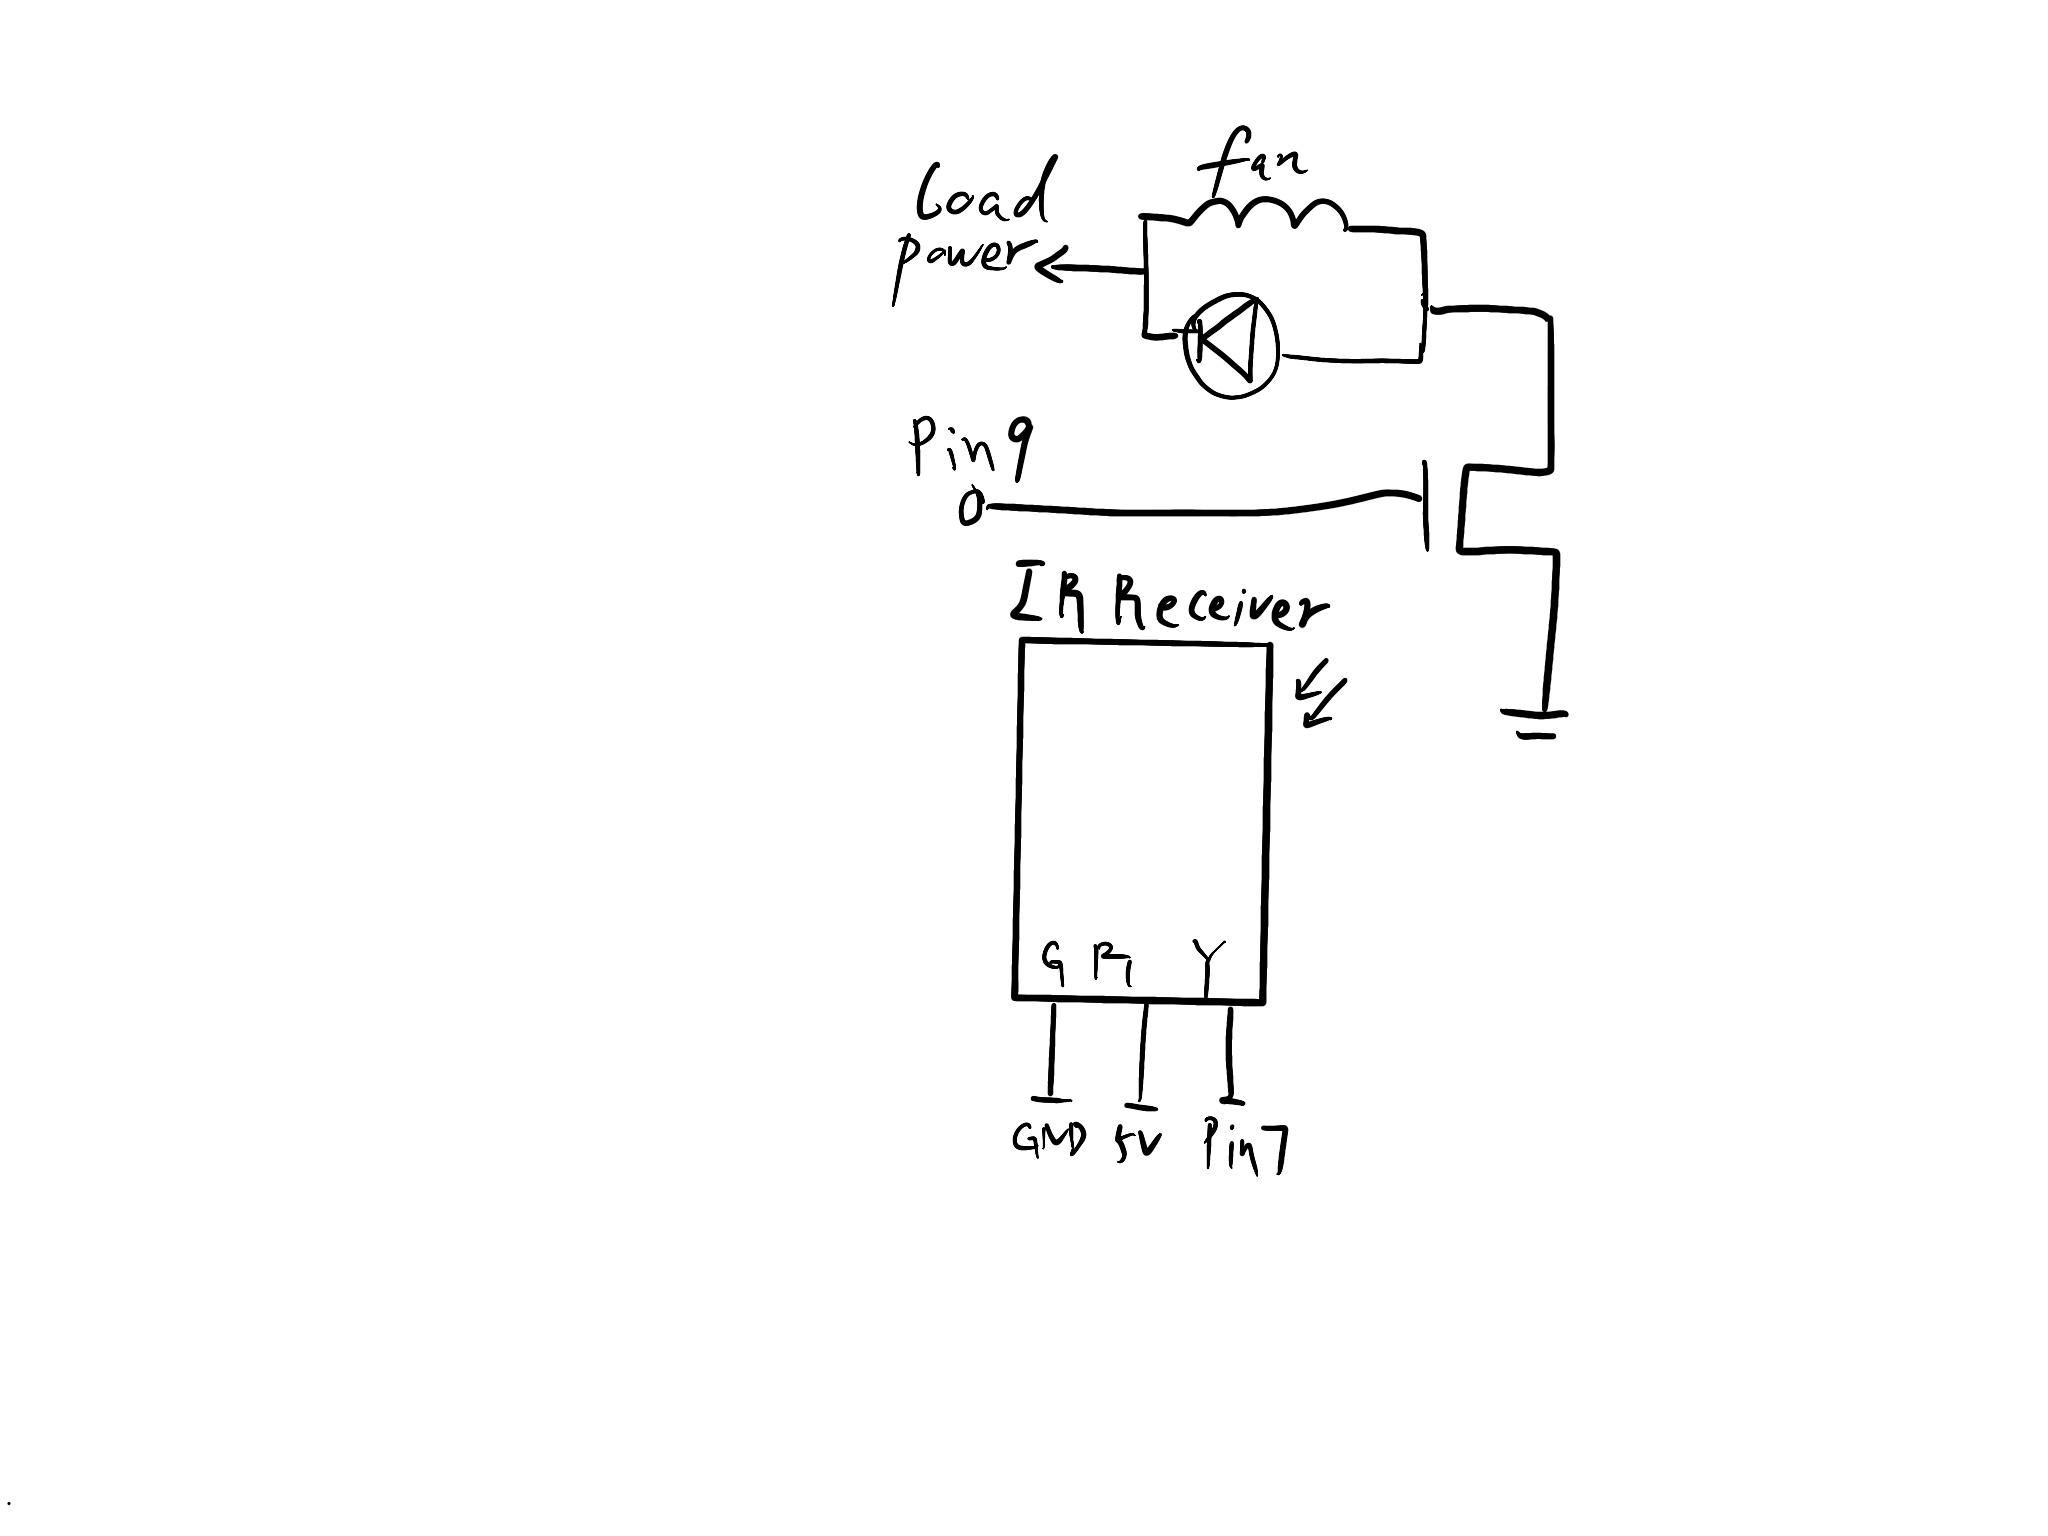 Load
power
fan
Pin 9
IR Receiver
G R Y
GND 5V Pin7